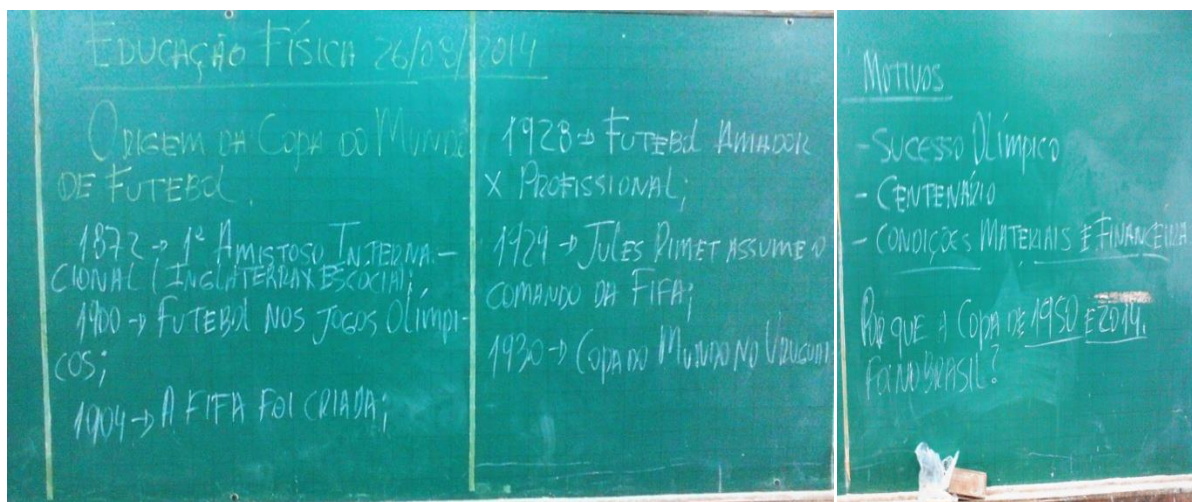 EDUCAÇÃO FÍSICA 26/08/2014
ORIGEM DA COPA DO MUNDO
DE FUTEBOL.
1872 → 1º AMISTOSO INTERNA-
CIONAL (INGLATERRA X ESCÓCIA);
1900 → FUTEBOL NOS JOGOS OLÍMPI-
COS;
1904 → A FIFA FOI CRIADA;
1928 → FUTEBOL AMADOR
X PROFISSIONAL;
1929 → JULES RIMET ASSUME O
COMANDO DA FIFA;
1930 → COPA DO MUNDO NO URUGUAI
MOTIVOS
- SUCESSO OLÍMPICO
- CENTENÁRIO
- CONDIÇÕES MATERIAIS E FINANCEIRA
POR QUE A COPA DE 1950 E 2014,
FOI NO BRASIL?